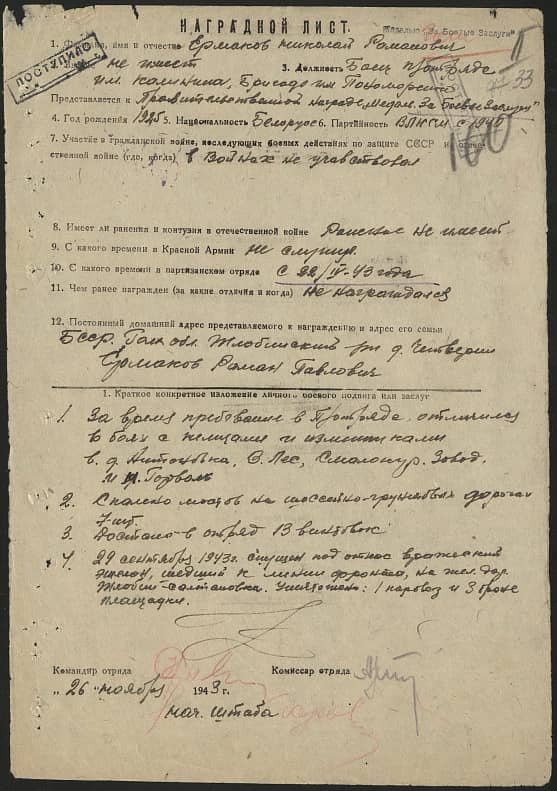 Медалью "За Боевые Заслуги"
НАГРАДНОЙ ЛИСТ.
ПОСТУПИЛО
1. Фамилия, имя и отчество Ермаков Николай Романович
не имеет 3. Должность Боец п/отряда
им. Калинина, Бригады им Пономоренко
Представляется к Правительственной Награде, Медаль "За Боевые Заслуги"
33
4. Год рождения 1925 5. Национальность Белорус 6. Партийность ВЛКСМ с 1940
160
7. Участие в гражданской войне, последующих боевых действиях по защите СССР и отече-
ственной войне (где, когда) в войнах не учавствовал
8. Имеет ли ранения и контузия в отечественной войне Ранение не имеет
9. С какого времени в Красной Армии не служил
10. С какого времени в партизанском отряде с 22/IV-43 года
11. Чем ранее награжден (за какие отличия и когда) не награждался
12. Постоянный домашний адрес представляемого к награждению и адрес его семьи
БССР. Гом обл. Жлобинский р-н д. Четверня
Ермаков Роман Павлович
1. Краткое конкретное изложение личного боевого подвига или заслуг
1. За время пребывание в П/отряде отличился
в боях с немцами и изменниками
в д. Антоновка, С. Лес, Смолокур. Завод.
и м. Горваль
2. Спалено мостов на шоссейно-грунтовых дорогах
7-шт.
3. Достал в отряд 13 винтовок
4. 29 сентября 1943 г. спущен под откос вражеский
эшелон, шедший к линии фронта, на жел. дор.
Жлобин-Салтановка. Уничтожено: 1 паровоз и 3 броне
площадки.
Командир отряда Комиссар отряда
„ 26 " ноября 1943 г.
нач. штаба